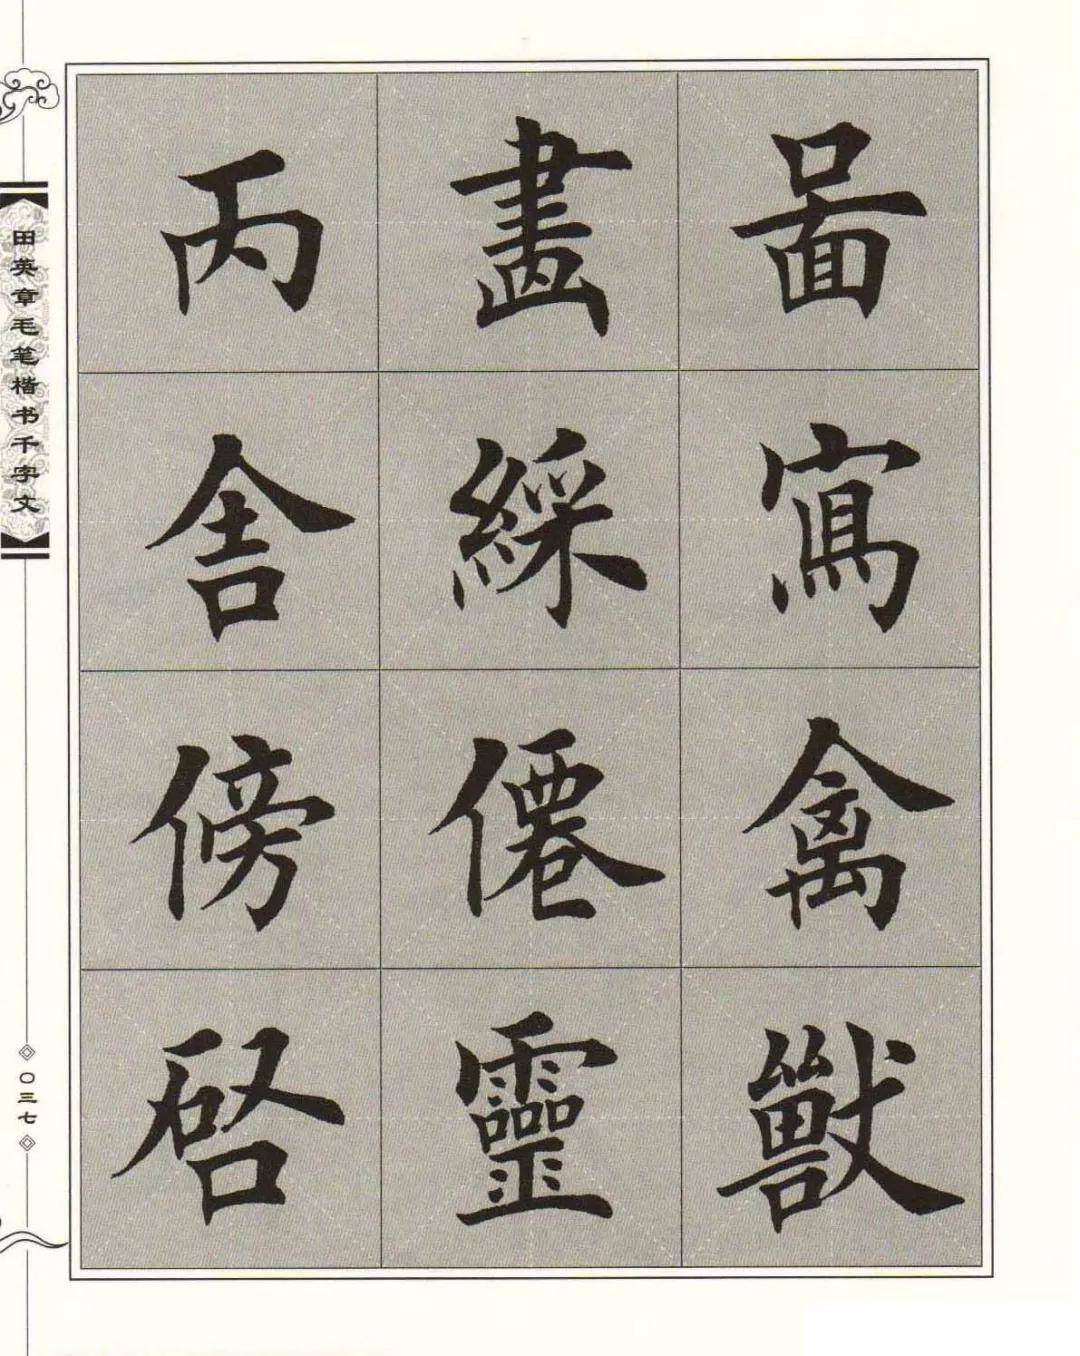 啚寫禽獸
畫綵僊靈
丙舍傍啓
田英章毛笔楷书千字文
〇三七